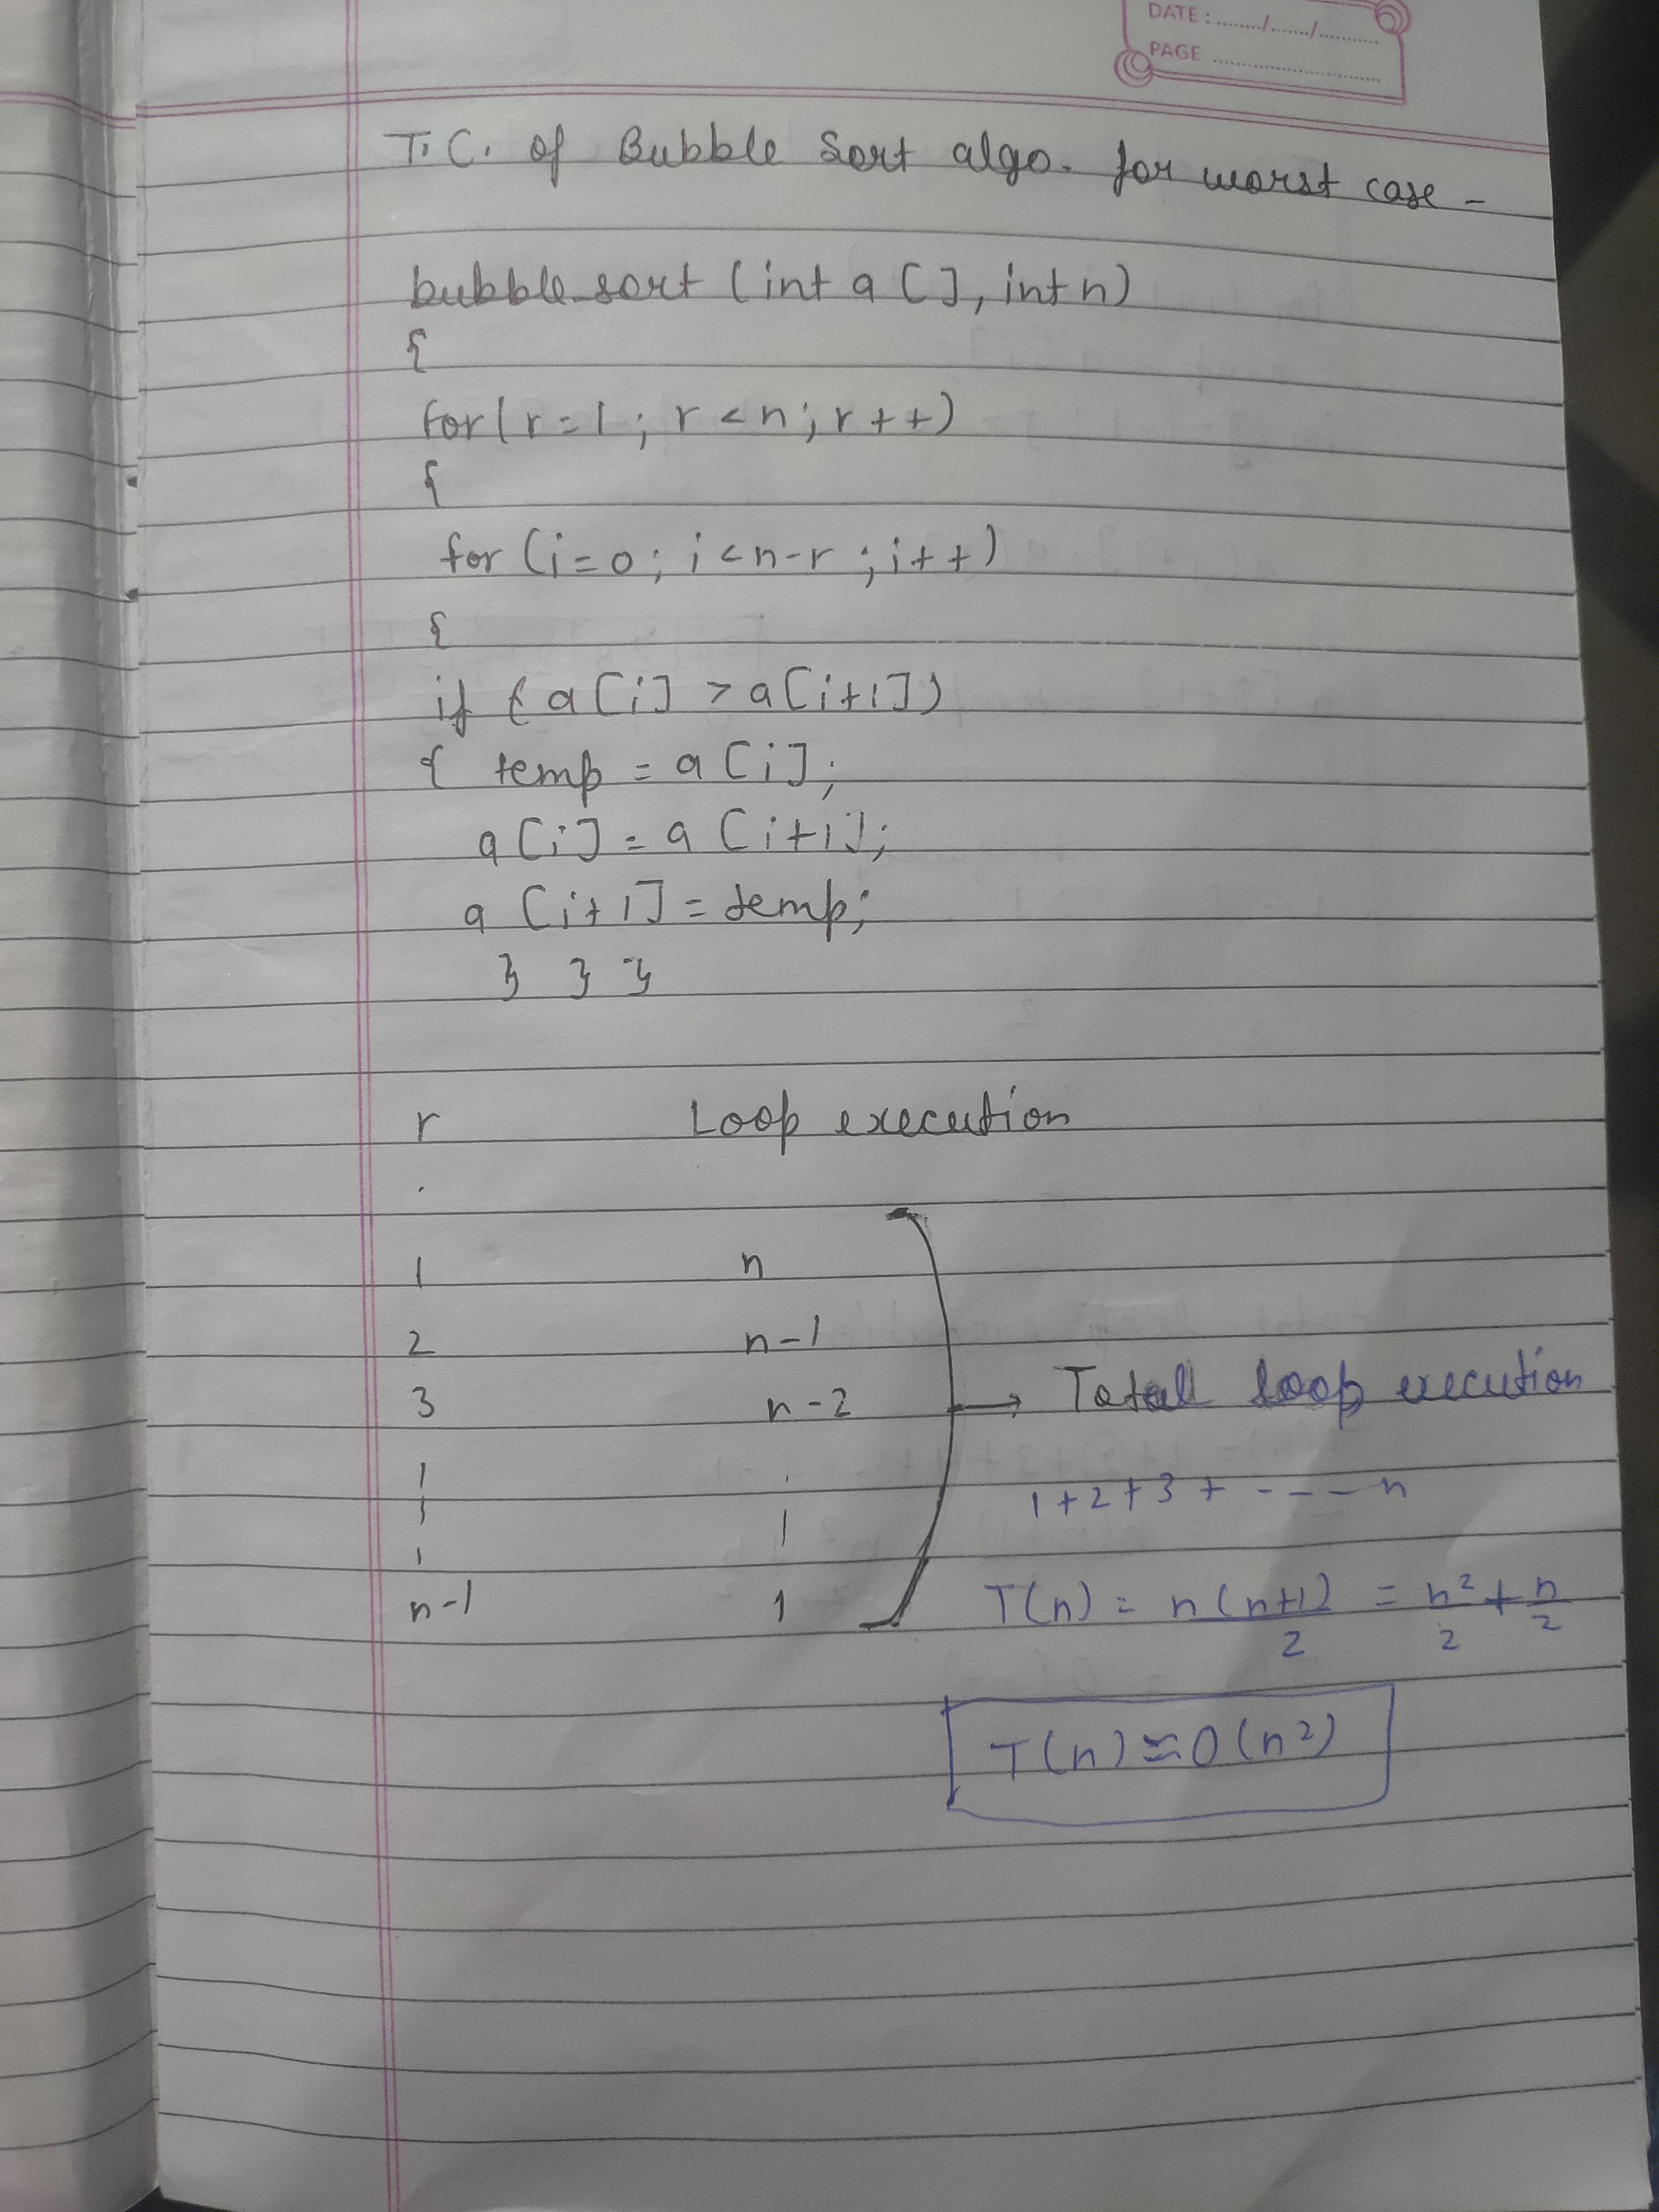 DATE : ......../......./............
PAGE ..................................
T.C. of Bubble Sort algo. for worst case -
bubble sort (int a [], int n)
{
for (r = 1 ; r < n ; r + +)
{
for (i = 0 ; i < n - r ; i + +)
{
if ( a [i] > a [i+1])
{ temp = a [i];
a [i] = a [i+1];
a [i+1] = temp;
} } }
r Loop execution
1 n
2 n-1
3 n-2
→ Total loop execution
1 + 2 + 3 + - - - - n
n-1 1
T(n) = n(n+1)/2 = n²/2 + n/2
T(n) ≈ O(n²)